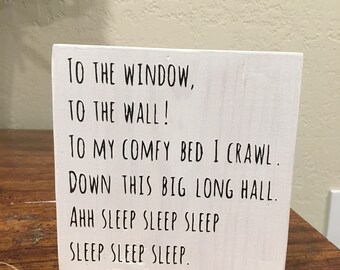 TO THE WINDOW,
TO THE WALL!
TO MY COMFY BED I CRAWL.
DOWN THIS BIG LONG HALL.
AHH SLEEP SLEEP SLEEP
SLEEP SLEEP SLEEP.